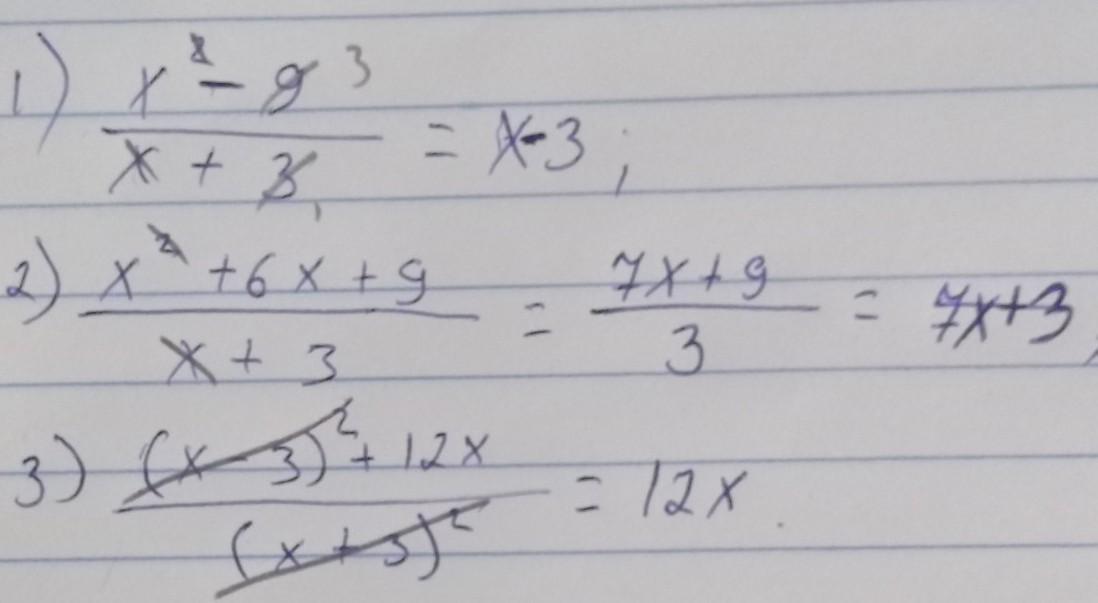 1) (x² - 9)/(x + 3) = x-3;
2) (x² + 6x + 9)/(x + 3) = (7x + 9)/3 = 7x+3,
3) ((x - 3)² + 12x)/(x + 3)² = 12x.